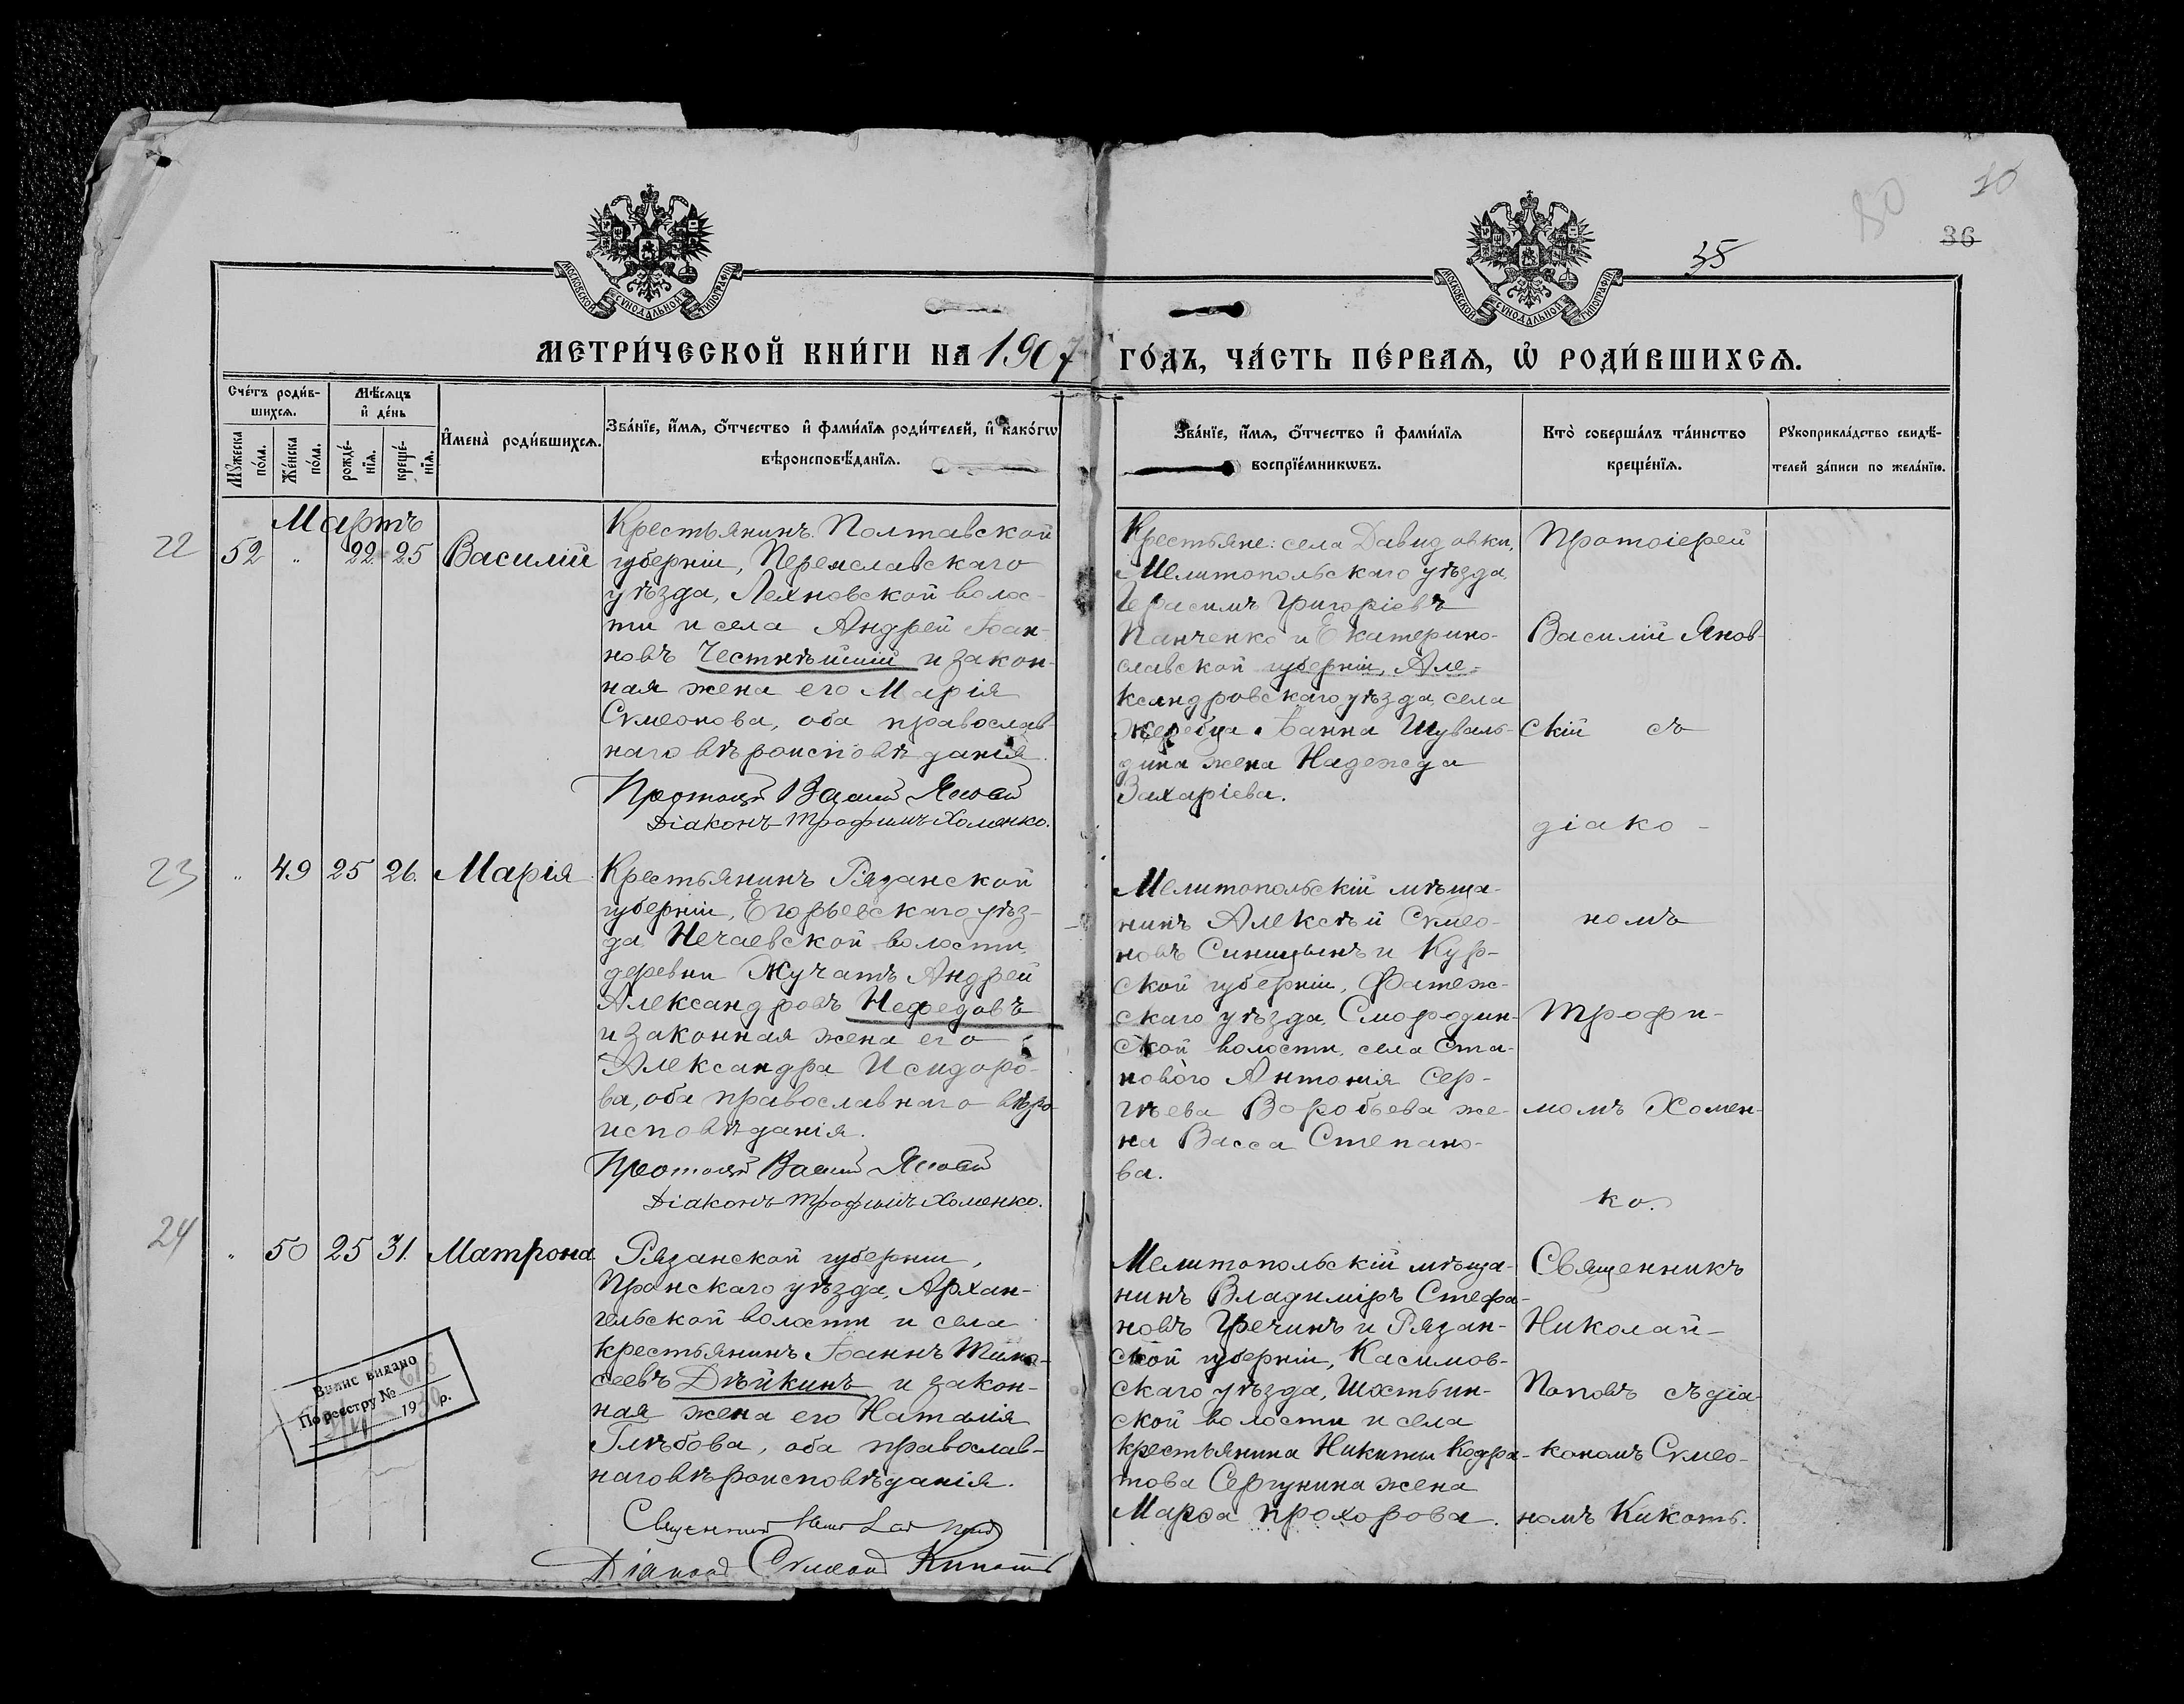 10
80
36
35
МОСКОВСКОЙ СѴНОДАЛЬНОЙ ТИПОГРАФІИ
МОСКОВСКОЙ СѴНОДАЛЬНОЙ ТИПОГРАФІИ
МЕТРИ́ЧЕСКОЙ КНИ́ГИ НА 1907 ГО́ДЪ, ЧА́СТЬ ПЕ́РВАѦ, Ѡ҆ РОДИ́ВШИХСѦ.
Сче́тъ роди́в-
шихсѧ.
Мꙋ́жеска по́ла.
Же́нска по́ла.
Мѣ́сѧцъ
и҆ де́нь
рожде́-
нїѧ.
креще́-
нїѧ.
И҆мена̀ роди́вшихсѧ.
Зва́нїе, и҆́мѧ, ѻ҆́тчество и҆ фами́лїѧ роди́телей, и҆ како́гѡ
вѣроисповѣ́данїѧ.
Зва́нїе, и҆́мѧ, ѻ҆́тчество и҆ фами́лїѧ
воспрїе́мникѡвъ.
Кто̀ соверша́лъ та́инство
креще́нїѧ.
Рꙋкоприкла́дство свидѣ́-
телей за́писи по жела́нїю.
Мартъ
22
52 " 22 25 Василій
Крестьянинъ Полтавской
губерніи, Переяславскаго
уѣзда, Лехновской волос-
ти и села Андрей Іоан-
новъ Честнѣйшій и закон-
ная жена его Марія
Сѵмеонова, оба православ-
наго вѣроисповѣданія.
Протоіерей Василій Яновскій
Діаконъ Трофимъ Хоменко.
Крестьяне: села Давидовки,
Мелитопольскаго уѣзда,
Герасимъ Григоріевъ
Панченко и Екатерино-
славской губерніи, Але-
ксандровскаго уѣзда, села
Жеребца Іоанна Шуваль-
дина жена Надежда
Захаріева.
Протоіерей
Василій Янов-
скій съ
діако-
номъ
Трофи-
момъ Хомен-
ко.
23
" 49 25 26. Марія
Крестьянинъ Рязанской
губерніи, Егорьевскаго уѣз-
да Нечаевской волости,
деревни Жучатъ Андрей
Александровъ Нефедовъ
и законная жена его
Александра Исидоро-
ва, оба православнаго вѣро-
исповѣданія.
Протоіерей Василій Яновскій
Діаконъ Трофимъ Хоменко.
Мелитопольскій мѣща-
нинъ Алексѣй Сѵмео-
новъ Синицынъ и Кур-
ской губерніи, Фатеж-
скаго уѣзда, Смородин-
ской волости, села Ста-
нового Антонія Сер-
гѣева Воробьева же-
на Васса Степано-
ва.
24
" 50 25 31. Матрона
Рязанской губерніи,
Пронскаго уѣзда, Архан-
гельской волости и села
крестьянинъ Іоаннъ Тимо-
сеевъ Дѣйкинъ и закон-
ная жена его Наталія
Глѣбова, оба православ-
наго вѣроисповѣданія.
Священникъ Николай Поповъ
Діаконъ Сѵмеонъ Кикоть
Мелитопольскій мѣща-
нинъ Владиміръ Стефа-
новъ Гречинъ и Рязан-
ской губерніи, Касимов-
скаго уѣзда, Шостьин-
ской волости и села
крестьянина Никиты Кодра-
това Сергунина жена
Марѳа Прохорова.
Священникъ
Николай
Поповъ съ діа-
кономъ Сѵмео-
номъ Кикоть.
Випис видано
По реєстру №
19 р.